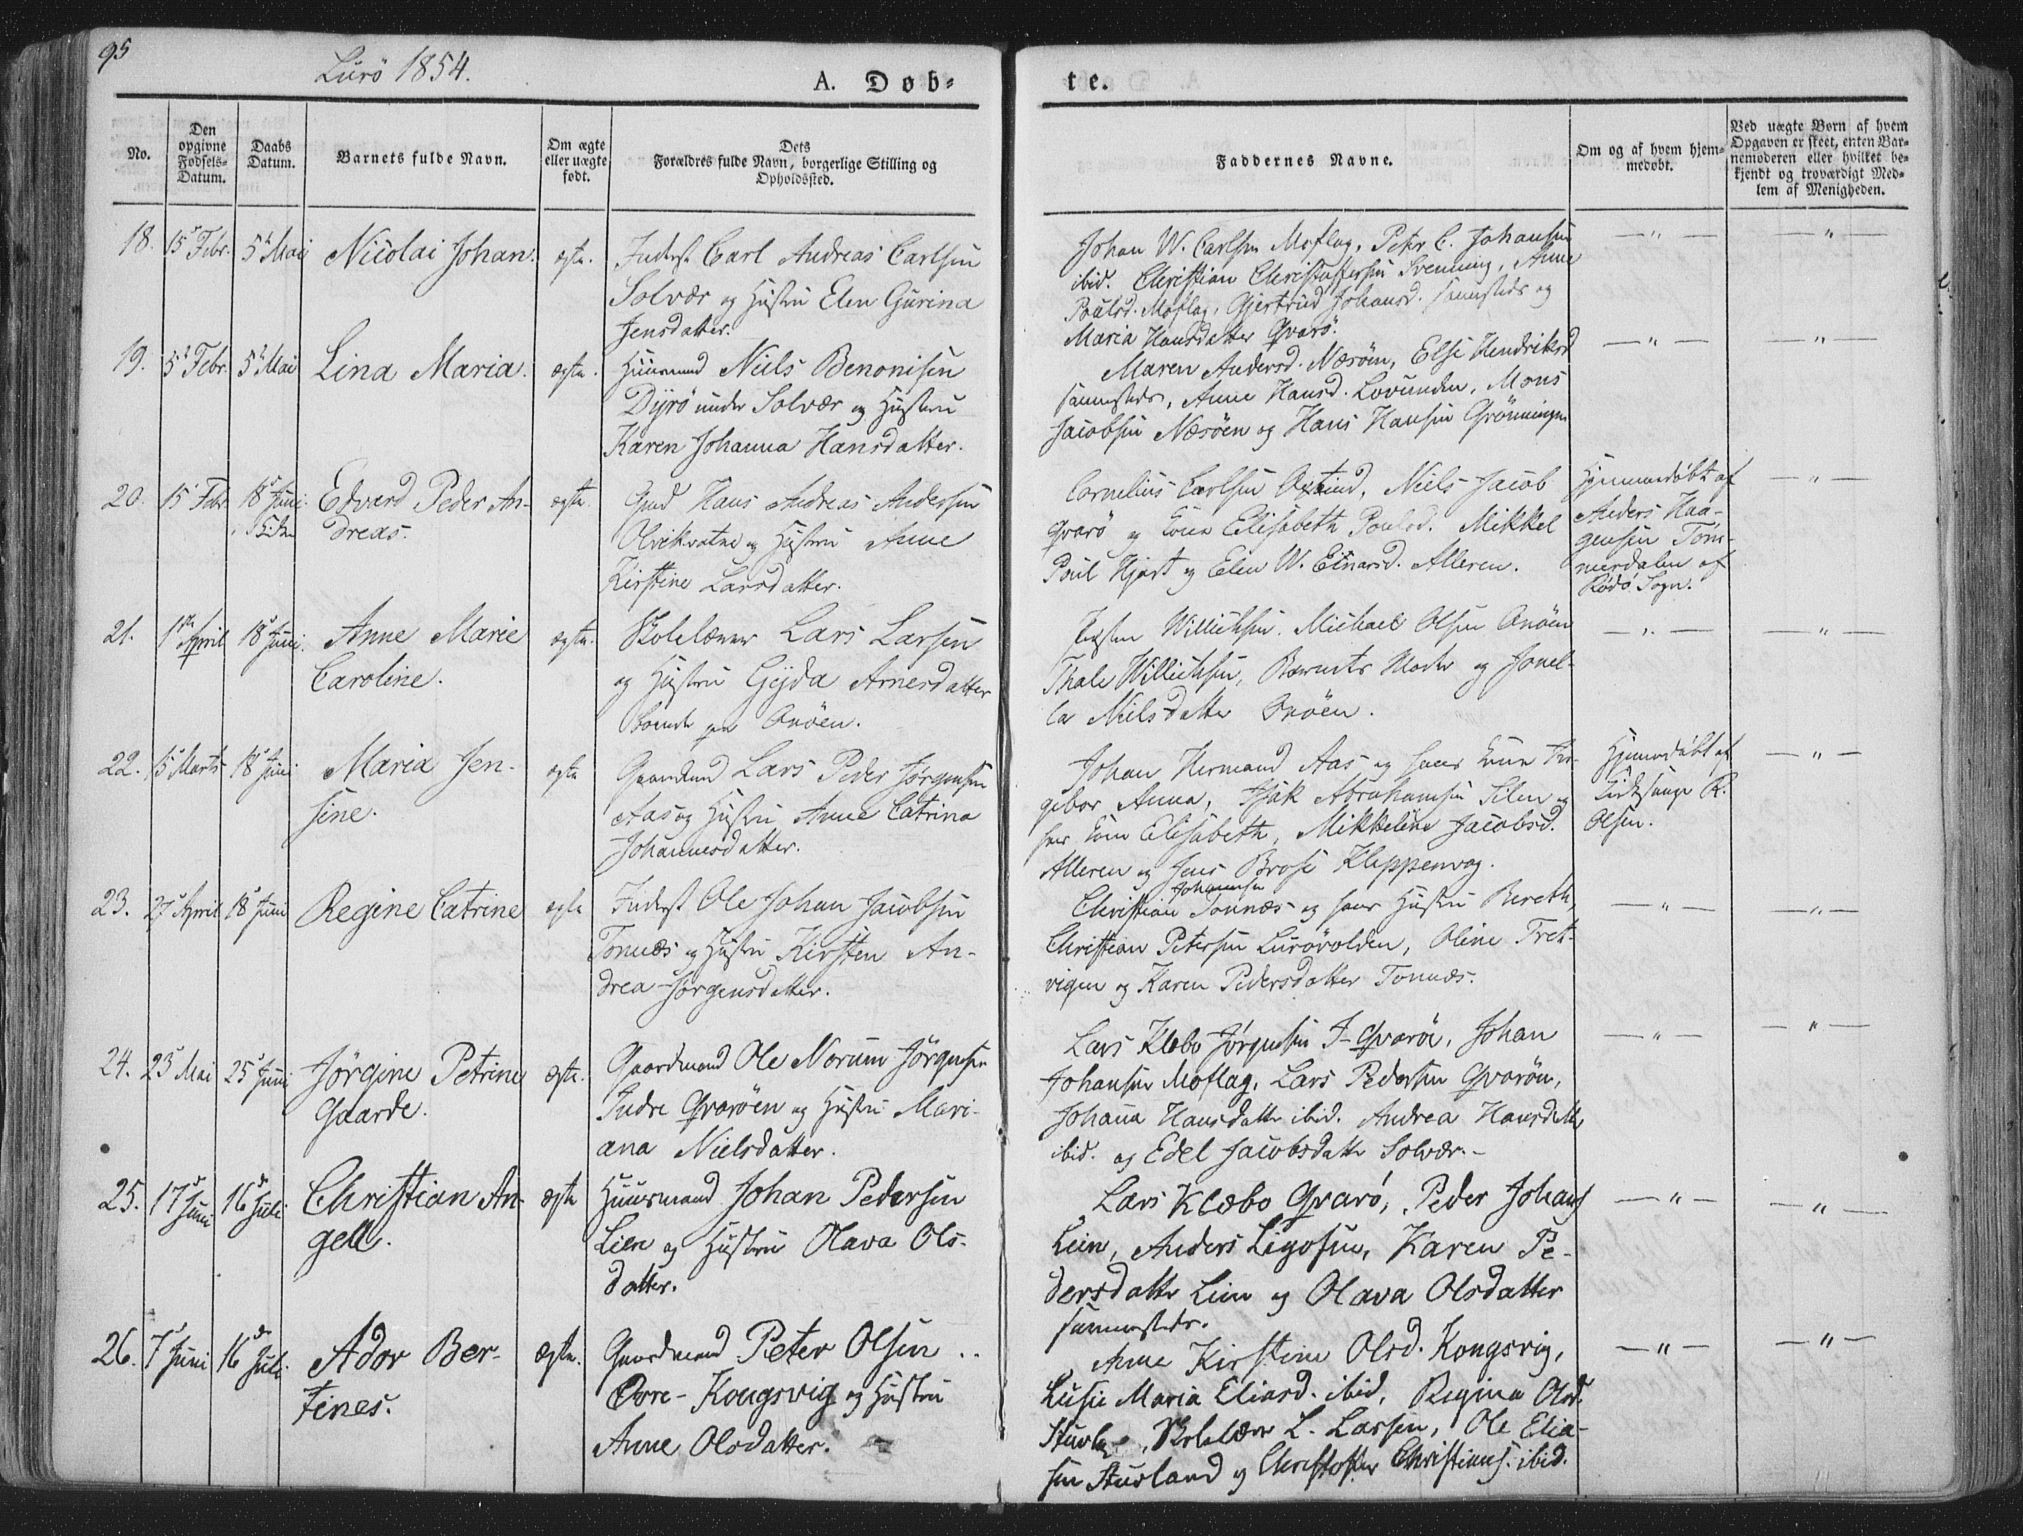 95
Lurö 1854.
A. Døb-
te.
No.
Den opgivne Fødsels-Datum.
Daabs Datum.
Barnets fulde Navn.
Om ægte eller uægte født.
Dets
Forældres fulde Navn, borgerlige Stilling og
Opholdssted.
Faddernes Navne.
Om og af hvem hjem-
medøbt.
Ved uægte Børn af hvem
Opgaven er skeet, enten Bar-
nemoderen eller hvilket be-
kjendt og troværdigt Med-
lem af Menigheden.
18. 15 Febr. 5 Mai Nicolai Johan. ægte. Inderst Carl Andreas Carlsen
Solvær og Hustru Elen Gurina
Jensdatter.
Johan W. Carlsen Moflag, Peter C. Johansen
ibid. Christian Christoffersen Svenning, Anne
Poulsd. Moflag, Gjertrud Johansd. sammesteds og
Maria Hansdatter Qvarö.
19. 5 Febr. 5 Mai Lina Maria. ægte. Huusmand Niels Benonisen
Dyrö under Solvær og Hustru
Karen Johanna Hansdatter.
Maren Andersd. Næsöen, Else Hendriksd
sammesteds, Anne Hansd. Lovunden, Mons
Jacobsen Næsöen og Hans Hansen Grönningen
20. 15 Febr 18 Juni Edvard Peder An-
dreas. ægte. Gmd Hans Andreas Andersen
Olvikvatne og Hustru Anne
Kirstine Larsdatter.
Cornelius Carlsen, Niels Jacob
Qvarö og Kone Elisabeth Poulsd. Mikkel
Poul Hjort og Elen W. Einarsd. Alleren.
Hjemmedöbt af
Anders Haa-
gensen Töm-
merdalen af
Rödö Sogn.
21. 1 April 18 Juni. Anne Marie
Caroline. ægte. Skolelærer Lars Larsen
og Hustru Gjida Arnesdatter
boende paa Onöen.
Willichsen. Michael Olsen Onöen
Thale Willichsen, Barnets Moder og Jonel-
la Nielsdatter Onöen.
22. 15 Marts 18 Juni Maria Jen-
sine. ægte Gaardmd Lars Peder Jörgensen
Aas og Hustru Anne Catrina
Johannesdatter.
Johan Hermand Aas og hans Kone In-
gebor Anna, Isak Abrahamsen Silen og
hans Kone Elisabeth, Mikkeline Jacobsd.
Alleren og Jens Brose Kleppenvag.
Hjemmedöbt af
Kirkesanger R.
Olsen.
23. 27 April 18 Juni Regine Catrine ægte Inderst Ole Johan Jacobsen
Tonnæs og Hustru Kirsten An-
drea Jörgensdatter.
Johannsen
Christian Tonnæs og hans Hustru Bereth,
Christian Petersen Lurövolden, Oline Tret-
vigen og Karen Pedersdatter Tonnæs.
24. 23 Mai 25 Juni Jörgine Petrine
Gaarde. ægte. Gaardmand Ole Norum Jörgensen
Indre Qvaröen og Hustru Mari-
ana Nielsdatter.
Lars Klebo Jörgensen I-Qvaröe, Johan
Johansen Moflag, Lars Pedersen Qvaröen,
Johana Hansdatter ibid. Andrea Hansdatter
ibid. og Edel Jacobsdatter Solvær.
25. 17 Juni 16 Juli Christian An-
gell. ægte Huusmand Johan Pedersen
Lien og Hustru Olava Ols-
datter.
Lars Klæbo Qvarö, Peder Johans
Lein, Anders Ligosen, Karen Pe-
dersdatter Lien og Olava Olsdatter
sammesteds.
26. 7 Juni 16 Juli. Ador Ber-
tines. ægte. Gaardmand Peter Olsen
Övre-Kongsvig og Hustru
Anne Olsdatter.
Anne Kirstine Olsd. Kongsvig,
Lusie Maria Eliasd. ibid, Regina Olsd.
Skolelærer L. Larsen, Ole Elia-
sen Stuvland og Christoffer Christians. ibid.